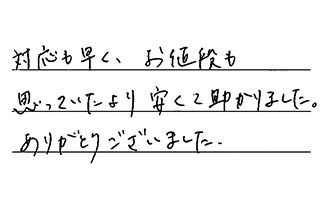 対応も早く、お値段も
思っていたより安くて助かりました。
ありがとうございました.